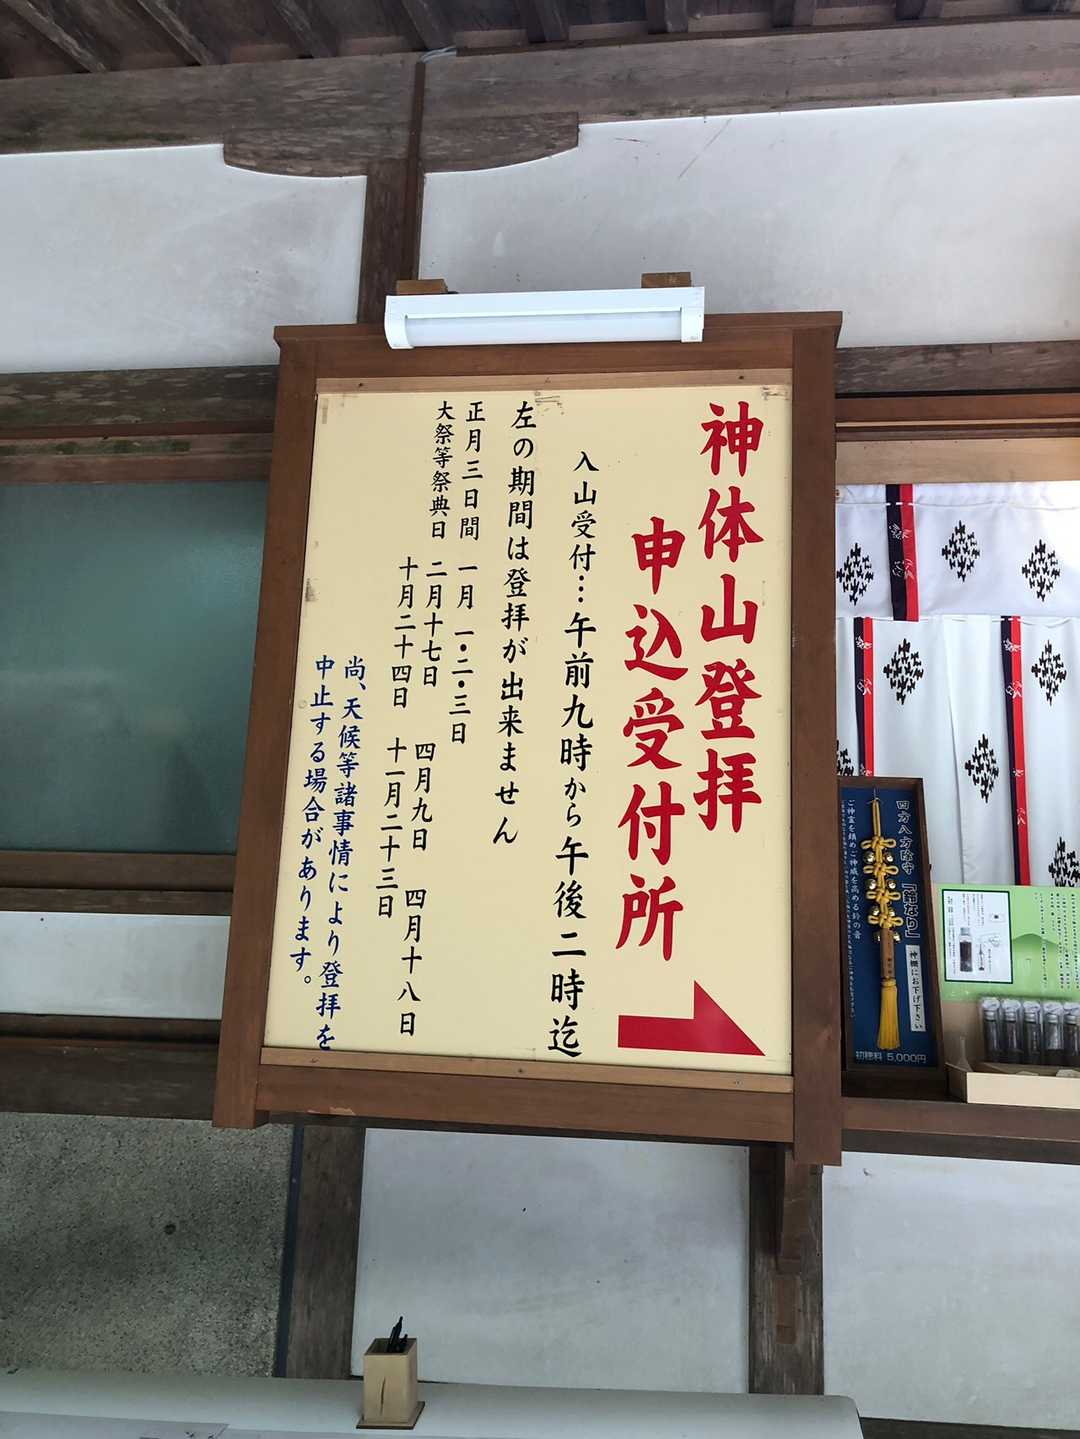 神体山登拝
申込受付所
入山受付…午前九時から午後二時迄
左の期間は登拝が出来ません
正月三日間 一月 一・二・三日
大祭等祭典日 二月十七日 四月九日 四月十八日
十月二十四日 十一月二十三日
尚、天候等諸事情により登拝を
中止する場合があります。
四方八方除守 「鈴なり」
ご神霊を鎮めご神威を高める鈴の音
神棚にお下げ下さい
初穂料 5,000円